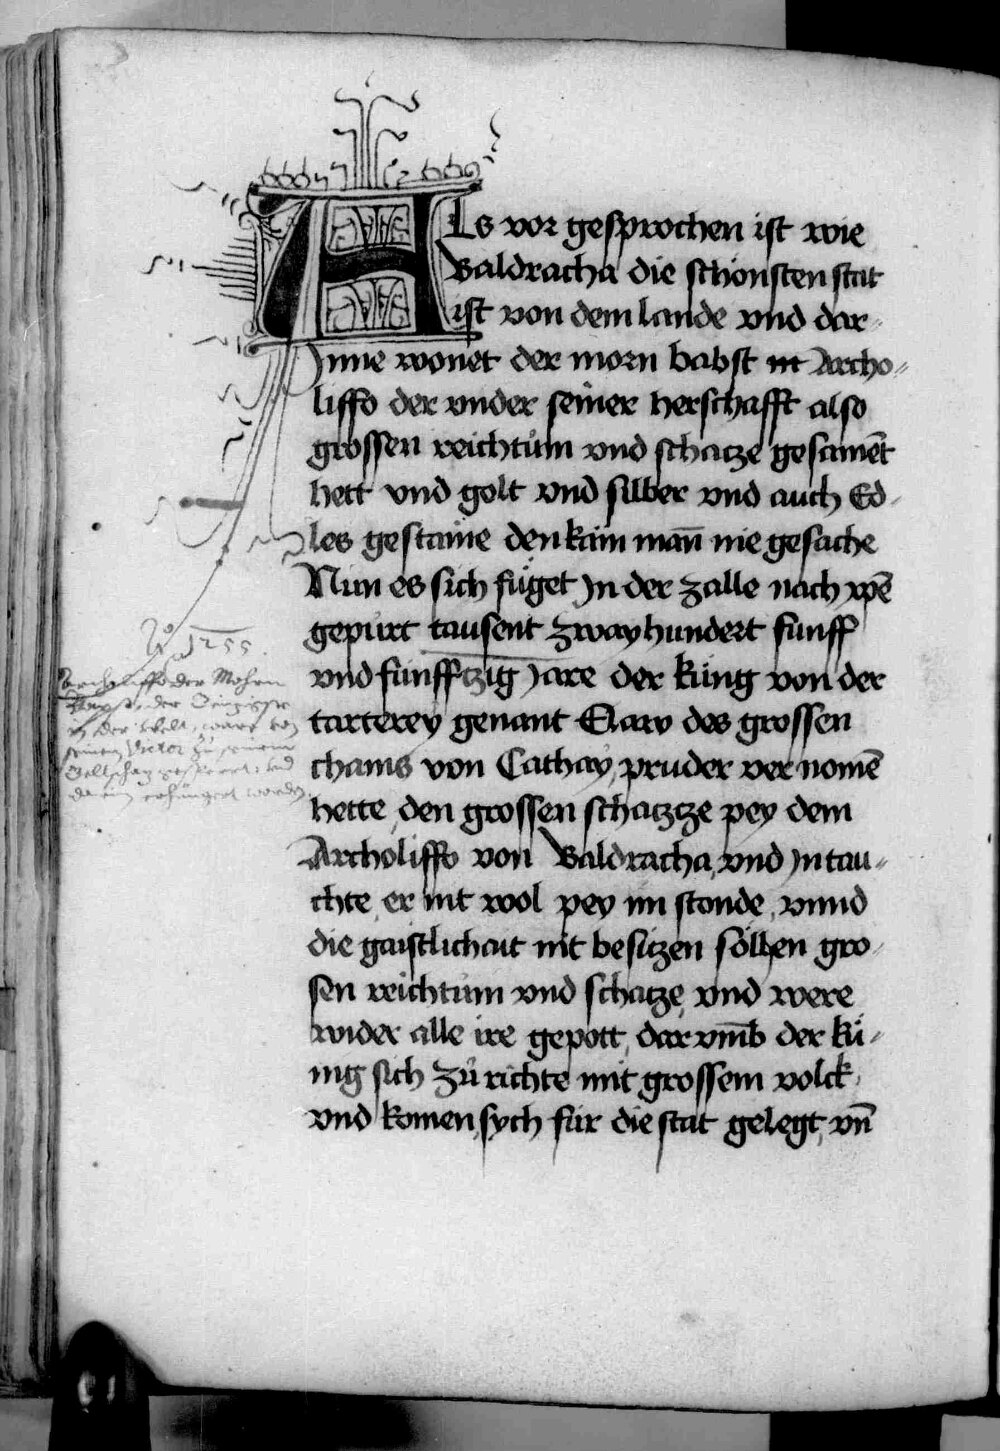 Als vor gesprochen ist wie
Baldracha die schönsten stat
ist von dem lande vnd dar-
Jnne wonet der morn babst Archo-
liffo der vnder seiner herschafft also
grossen reichtům vnd schacze gesamēt
hett vnd golt vnd silber vnd auch Ed-
les gestaine den kain man̄ nie gesache
Nun es sich füget Jn der zalle nach xpē
gepürt tausent zwayhundert funff
vnd funfftzig Jare der küng von der
tarterey genant Elaw des grossen
chams von Cathay, pruder vernomē
hette, den grossen schatze pey dem
Archoliffo von Baldracha, vnd Jn tau-
chte, er nit wol pey im stonde, vnnd
die gaistlichait nit besitzen söllen gro-
sen reichtům vnd schacze, vnd were
wider alle ire gepott, dar vm̄b der kü-
nig sich zů richte mit grossem volck
vnd komen, sych für die stat gelegt, vn̄
Ao 1255.
Archaliffo der Mohren
Babst, der
in der Welt, ware von
seinem Victor zu seinem
gespert, vnd
darein erhungert worden